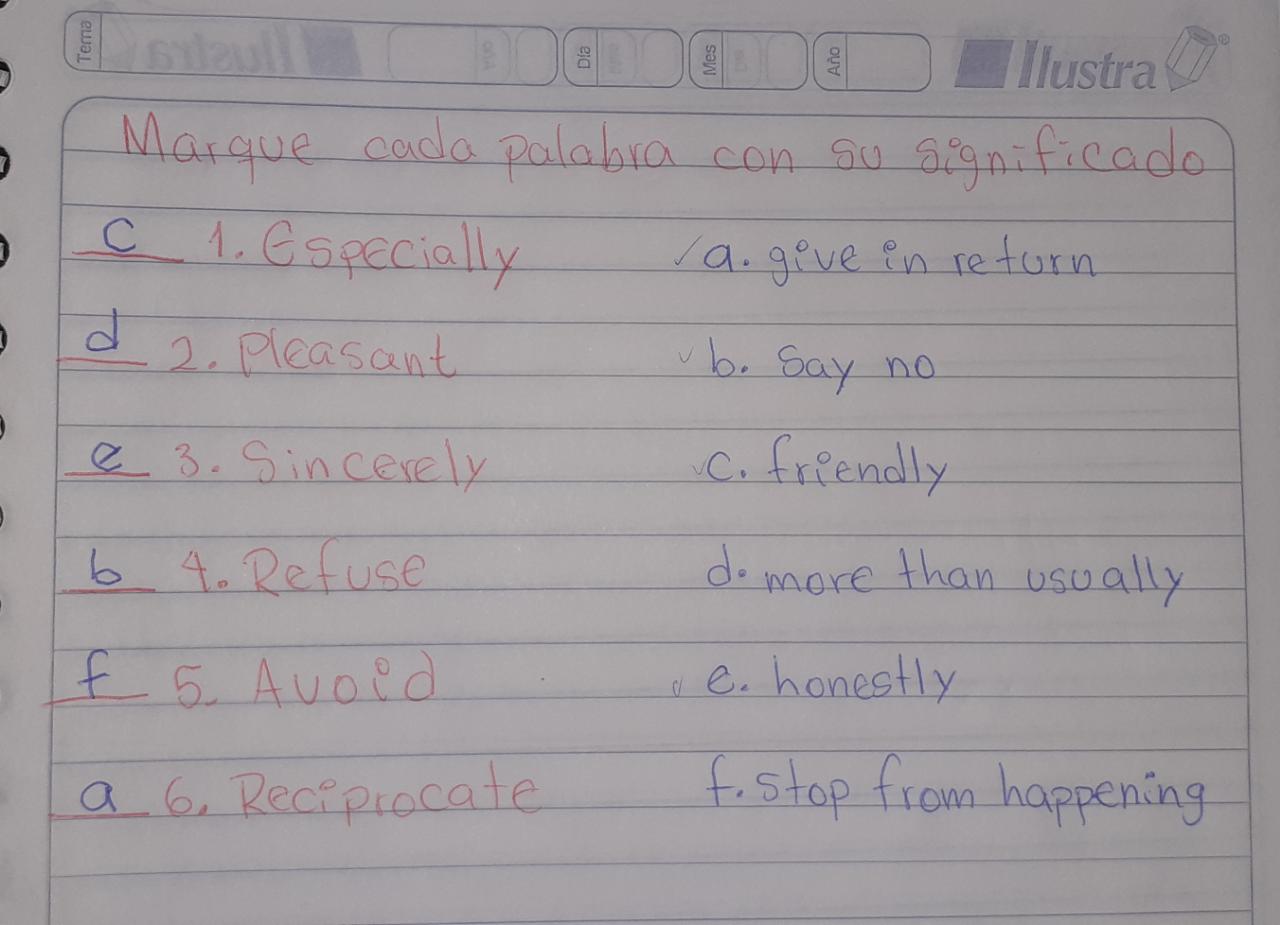 Tema Día Mes Año Ilustra
Marque cada palabra con su significado
c 1. Especially ✓a. give in return
d 2. Pleasant ✓b. Say no
e 3. Sincerely ✓c. friendly
b 4. Refuse d. more than usually
f 5. Avoid ✓e. honestly
a 6. Reciprocate f. stop from happening